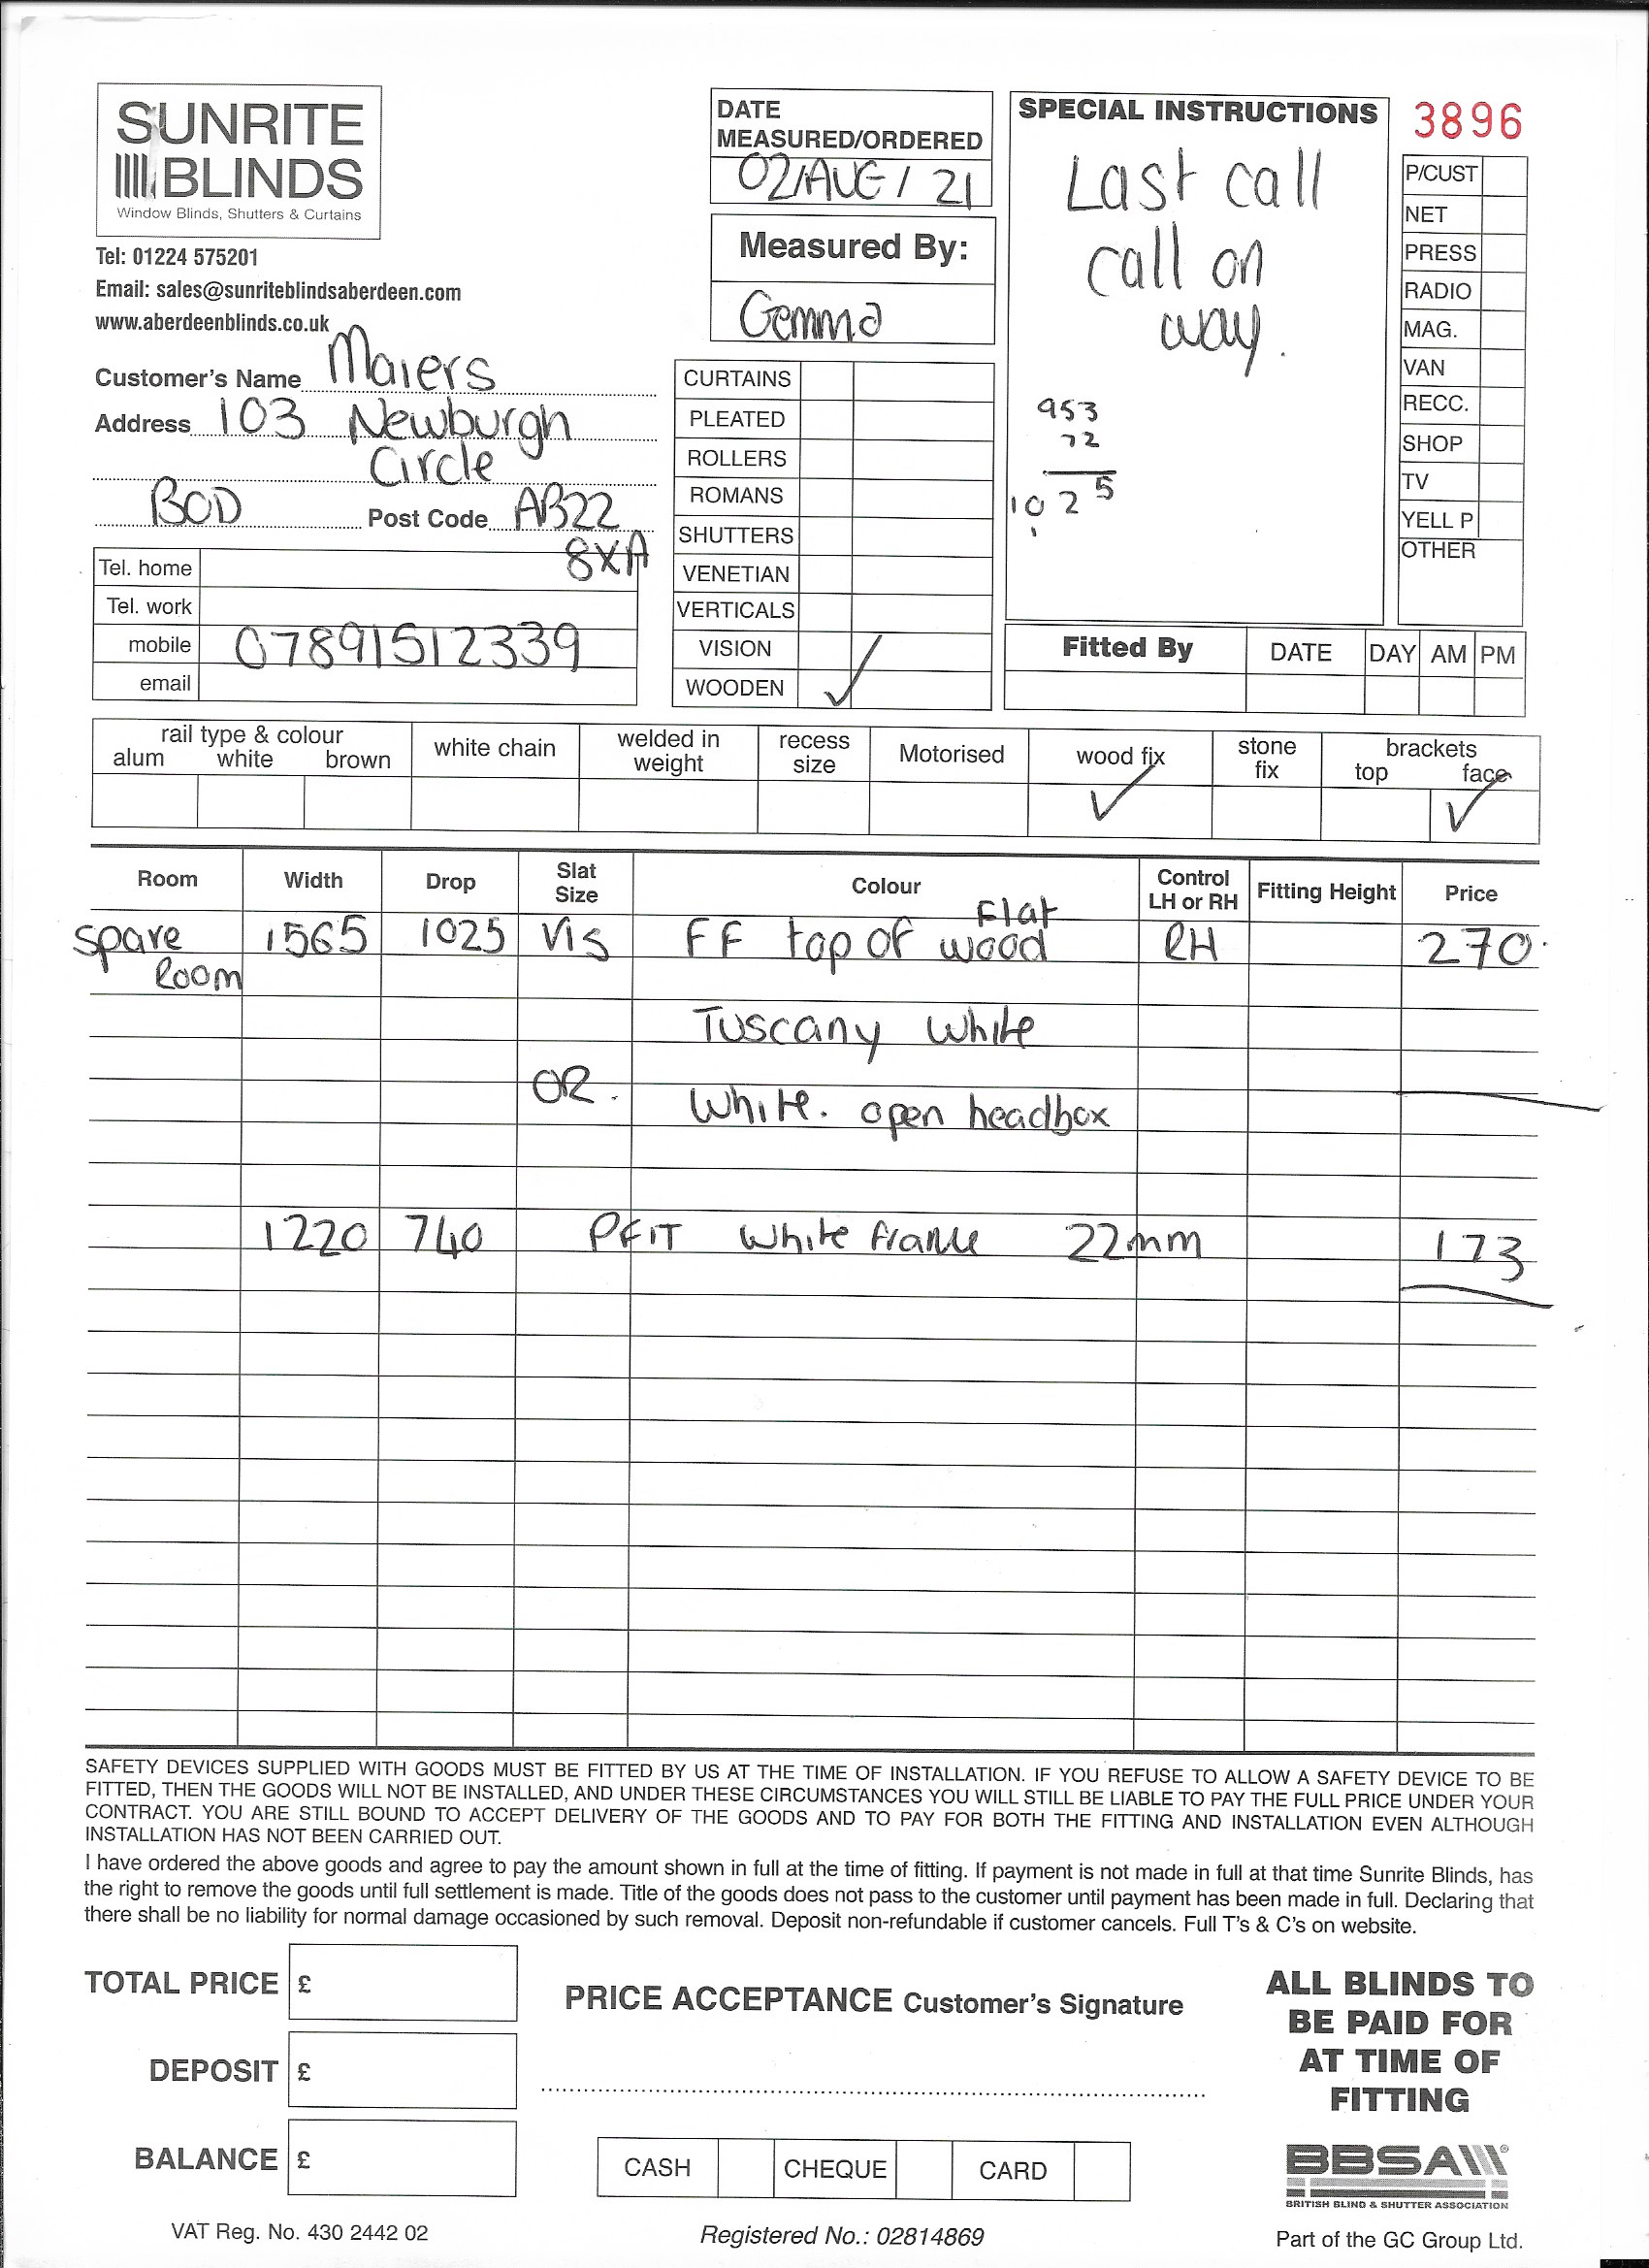 SUNRITE
BLINDS
Window Blinds, Shutters & Curtains
Tel: 01224 575201
Email: sales@sunriteblindsaberdeen.com
www.aberdeenblinds.co.uk
Customer's Name Maiers
Address 103 Newburgh
Circle
BOD Post Code AB22
8XA
Tel. home
Tel. work
mobile 07891512339
email
DATE
MEASURED/ORDERED
02/AUG/21
Measured By:
Gemma
CURTAINS
PLEATED
ROLLERS
ROMANS
SHUTTERS
VENETIAN
VERTICALS
VISION ✓
WOODEN
SPECIAL INSTRUCTIONS
Last call
call on
way.
953
72
1025
1
3896
P/CUST
NET
PRESS
RADIO
MAG.
VAN
RECC.
SHOP
TV
YELL P
OTHER
Fitted By DATE DAY AM PM
rail type & colour
alum white brown
white chain
welded in
weight
recess
size
Motorised
wood fix ✓
stone
fix
brackets
top face ✓
Room Width Drop Slat Size Colour Control LH or RH Fitting Height Price
Flat
Spare 1565 1025 Vis FF top of wood RH 270.
Room
Tuscany White
OR. White. open headbox
1220 740 PFIT White frame 22mm 173
SAFETY DEVICES SUPPLIED WITH GOODS MUST BE FITTED BY US AT THE TIME OF INSTALLATION. IF YOU REFUSE TO ALLOW A SAFETY DEVICE TO BE
FITTED, THEN THE GOODS WILL NOT BE INSTALLED, AND UNDER THESE CIRCUMSTANCES YOU WILL STILL BE LIABLE TO PAY THE FULL PRICE UNDER YOUR
CONTRACT. YOU ARE STILL BOUND TO ACCEPT DELIVERY OF THE GOODS AND TO PAY FOR BOTH THE FITTING AND INSTALLATION EVEN ALTHOUGH
INSTALLATION HAS NOT BEEN CARRIED OUT.
I have ordered the above goods and agree to pay the amount shown in full at the time of fitting. If payment is not made in full at that time Sunrite Blinds, has
the right to remove the goods until full settlement is made. Title of the goods does not pass to the customer until payment has been made in full. Declaring that
there shall be no liability for normal damage occasioned by such removal. Deposit non-refundable if customer cancels. Full T's & C's on website.
TOTAL PRICE £
DEPOSIT £
BALANCE £
PRICE ACCEPTANCE Customer's Signature
CASH CHEQUE CARD
ALL BLINDS TO
BE PAID FOR
AT TIME OF
FITTING
BBSA
BRITISH BLIND & SHUTTER ASSOCIATION
VAT Reg. No. 430 2442 02
Registered No.: 02814869
Part of the GC Group Ltd.